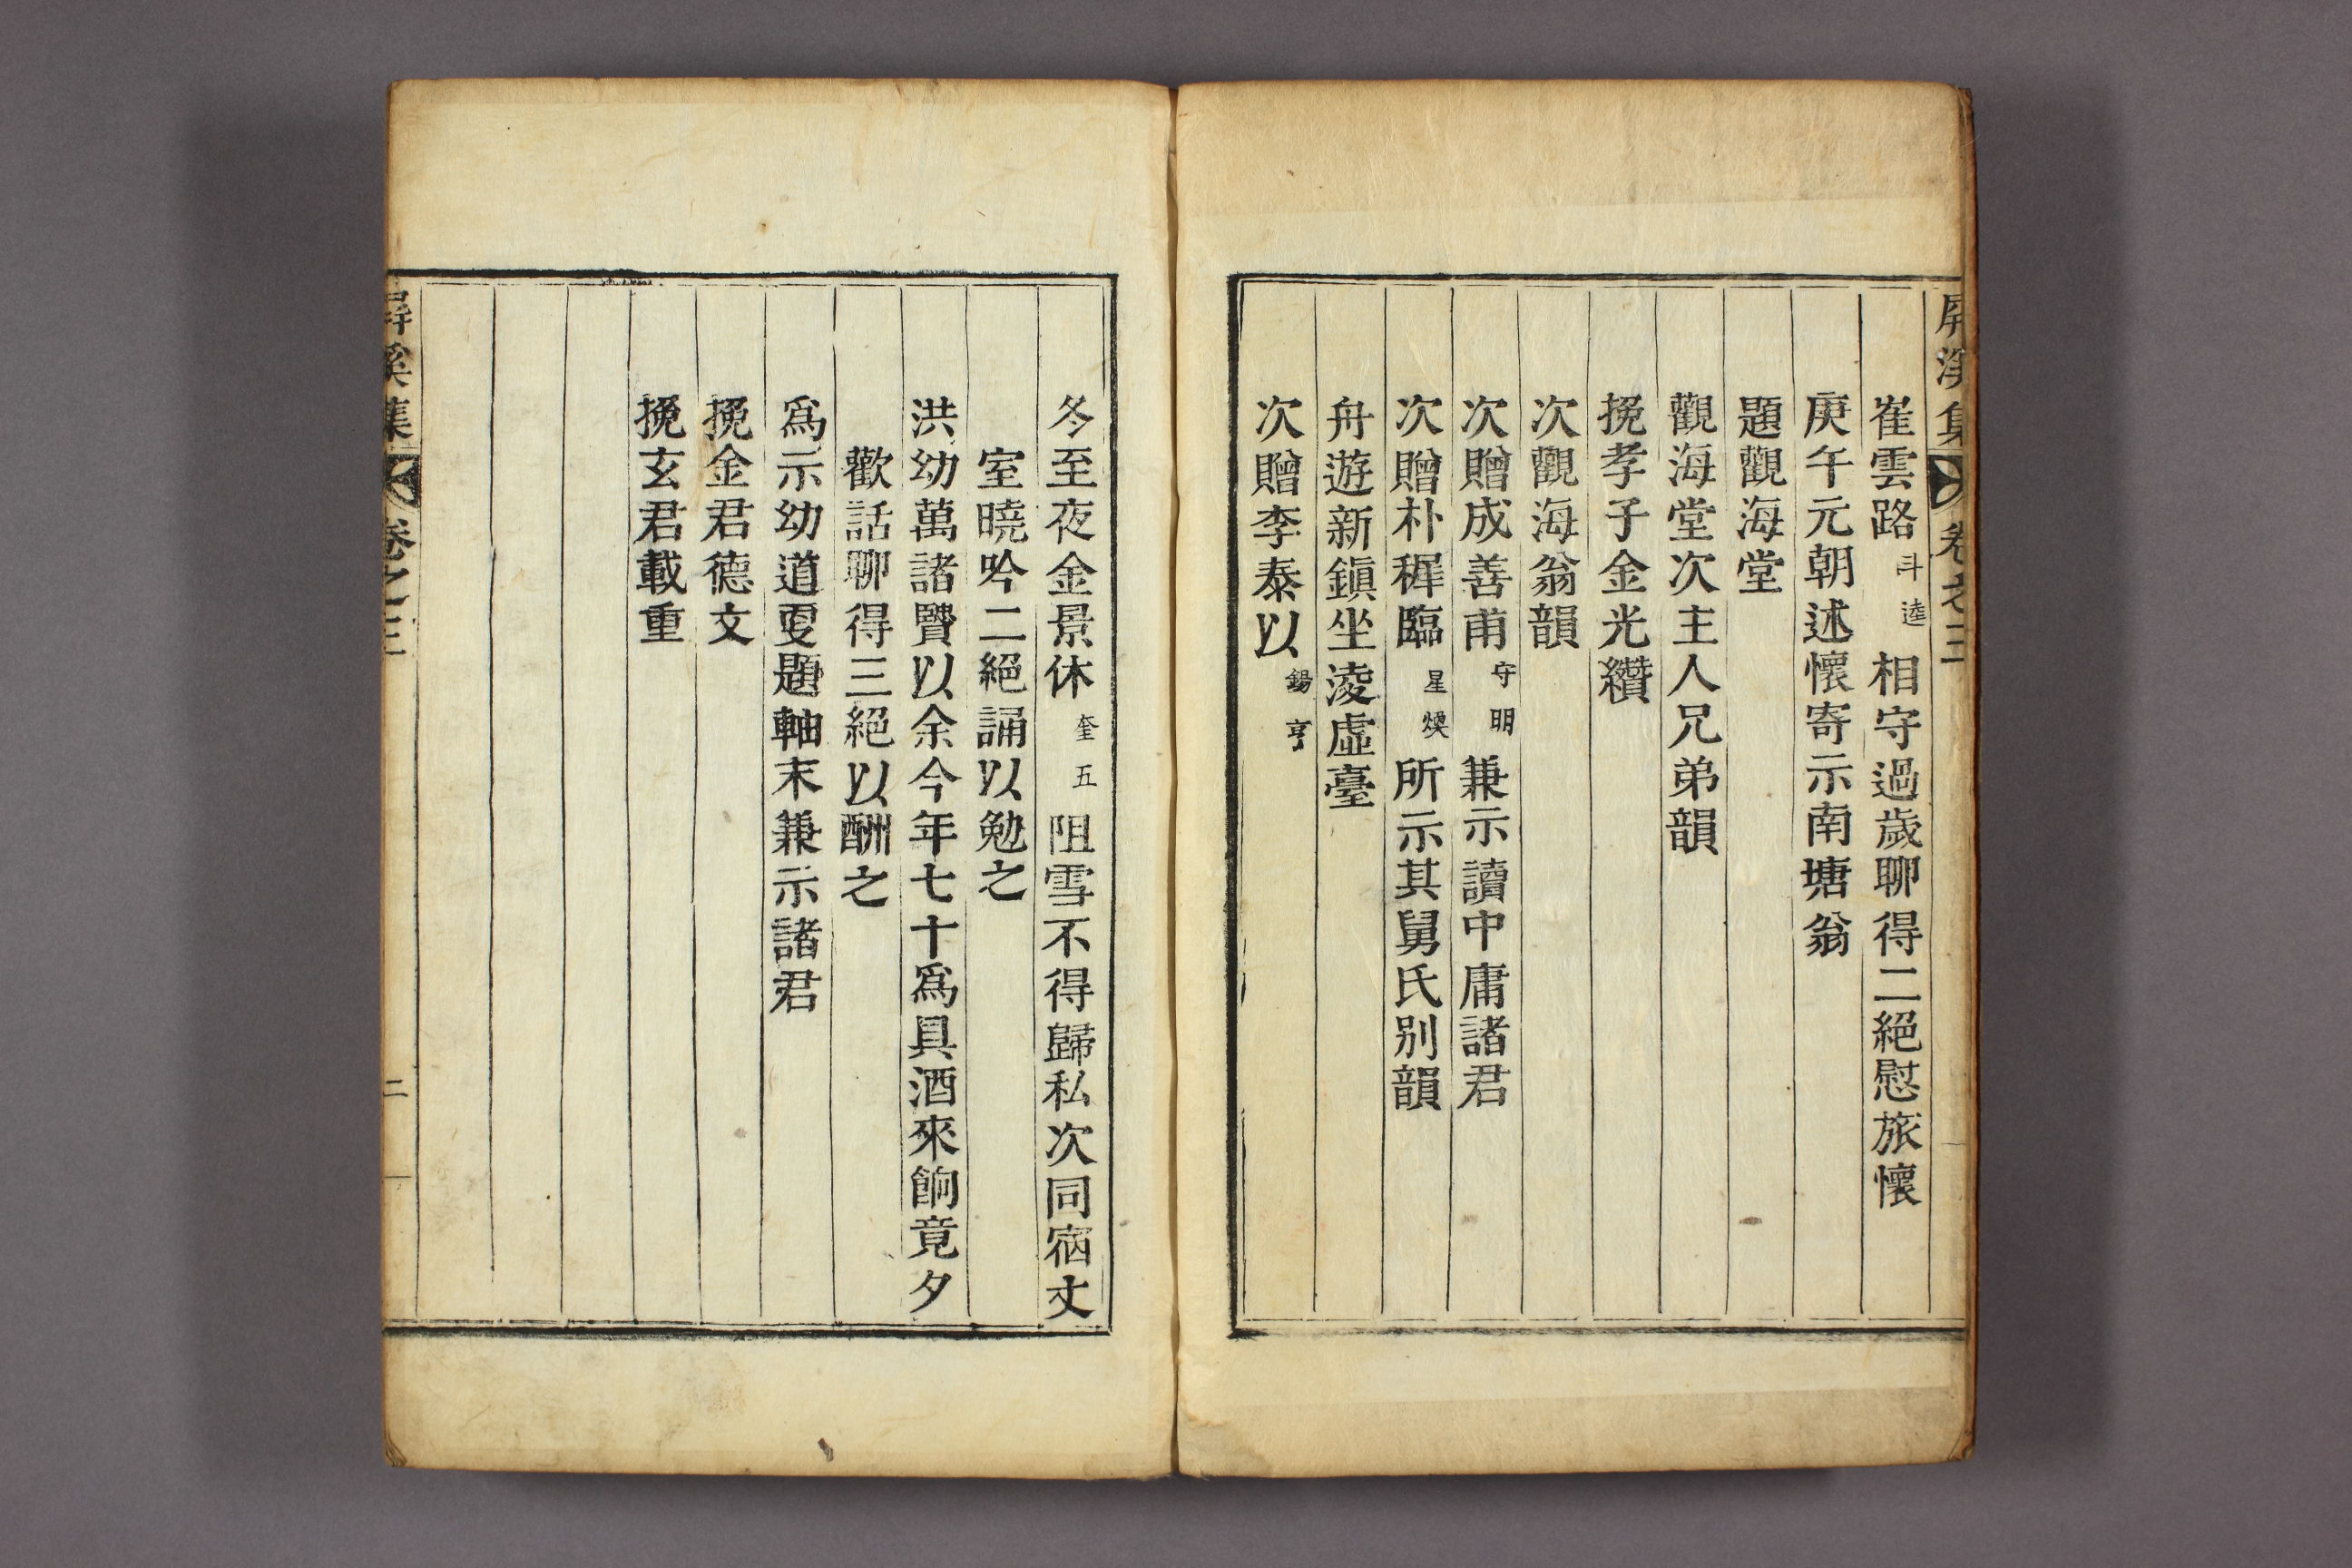 屏溪集 卷之三
崔雲路斗逵相守過歲聊得二絕慰旅懷
庚午元朝述懷寄示南塘翁
題觀海堂
觀海堂次主人兄弟韻
挽孝子金光纘
次觀海翁韻
次贈成善甫守明兼示讀中庸諸君
次贈朴穉臨星煥所示其舅氏別韻
舟遊新鎭坐凌虛臺
次贈李泰以錫亨
冬至夜金景休奎五阻雪不得歸私次同宿丈
室曉吟二絕誦以勉之
洪幼萬諸賢以余今年七十爲具酒來餉竟夕
歡話聊得三絕以酬之
爲示幼道更題軸末兼示諸君
挽金君德文
挽玄君載重
屏溪集 卷之三 二